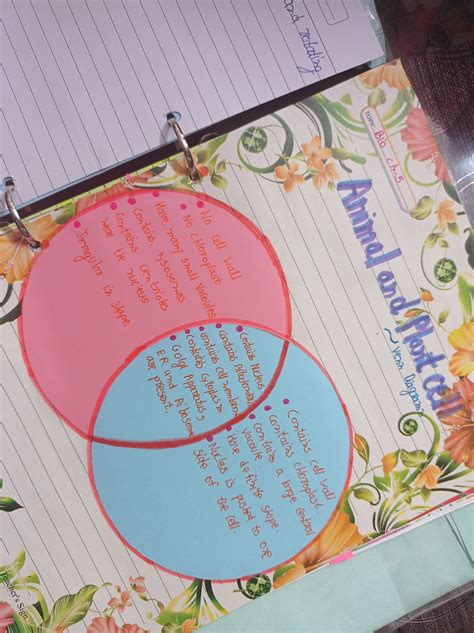 and rotating
Bio ch:5
Animal and Plant cell
~ Venn Diagram
• No cell wall
• No chloroplast
• Have many small vacuoles
• Contains lysosomes
• Contains centrioles
near the nucleus
• Irregular in shape
• Contains Nucleus
• Contains Mitochondria
• Contains cell membrane
• Contains Cytoplasm
Golgi Apparatus,
ER and Ribosome
are present.
• Contains cell wall
• Contains chloroplast.
• Contains a large central
vacuole.
• Have definite shape.
• Nucleus is pushed to one
side of the cell.
Teacher's Sign